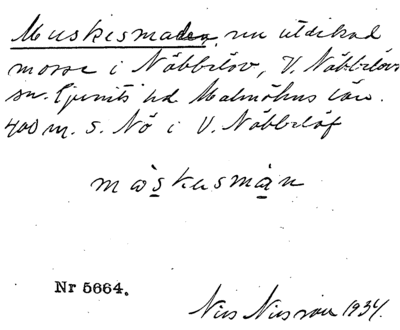 Muskismaden, nu utdikad
mosse i Nöbbelöv, V. Nöbbelövs
sn. Ljunits hd. Malmöhus län.
400 m. S. Nö i V. Nöbbelöf
Nr 5664.
Nils Nilsson 1934.